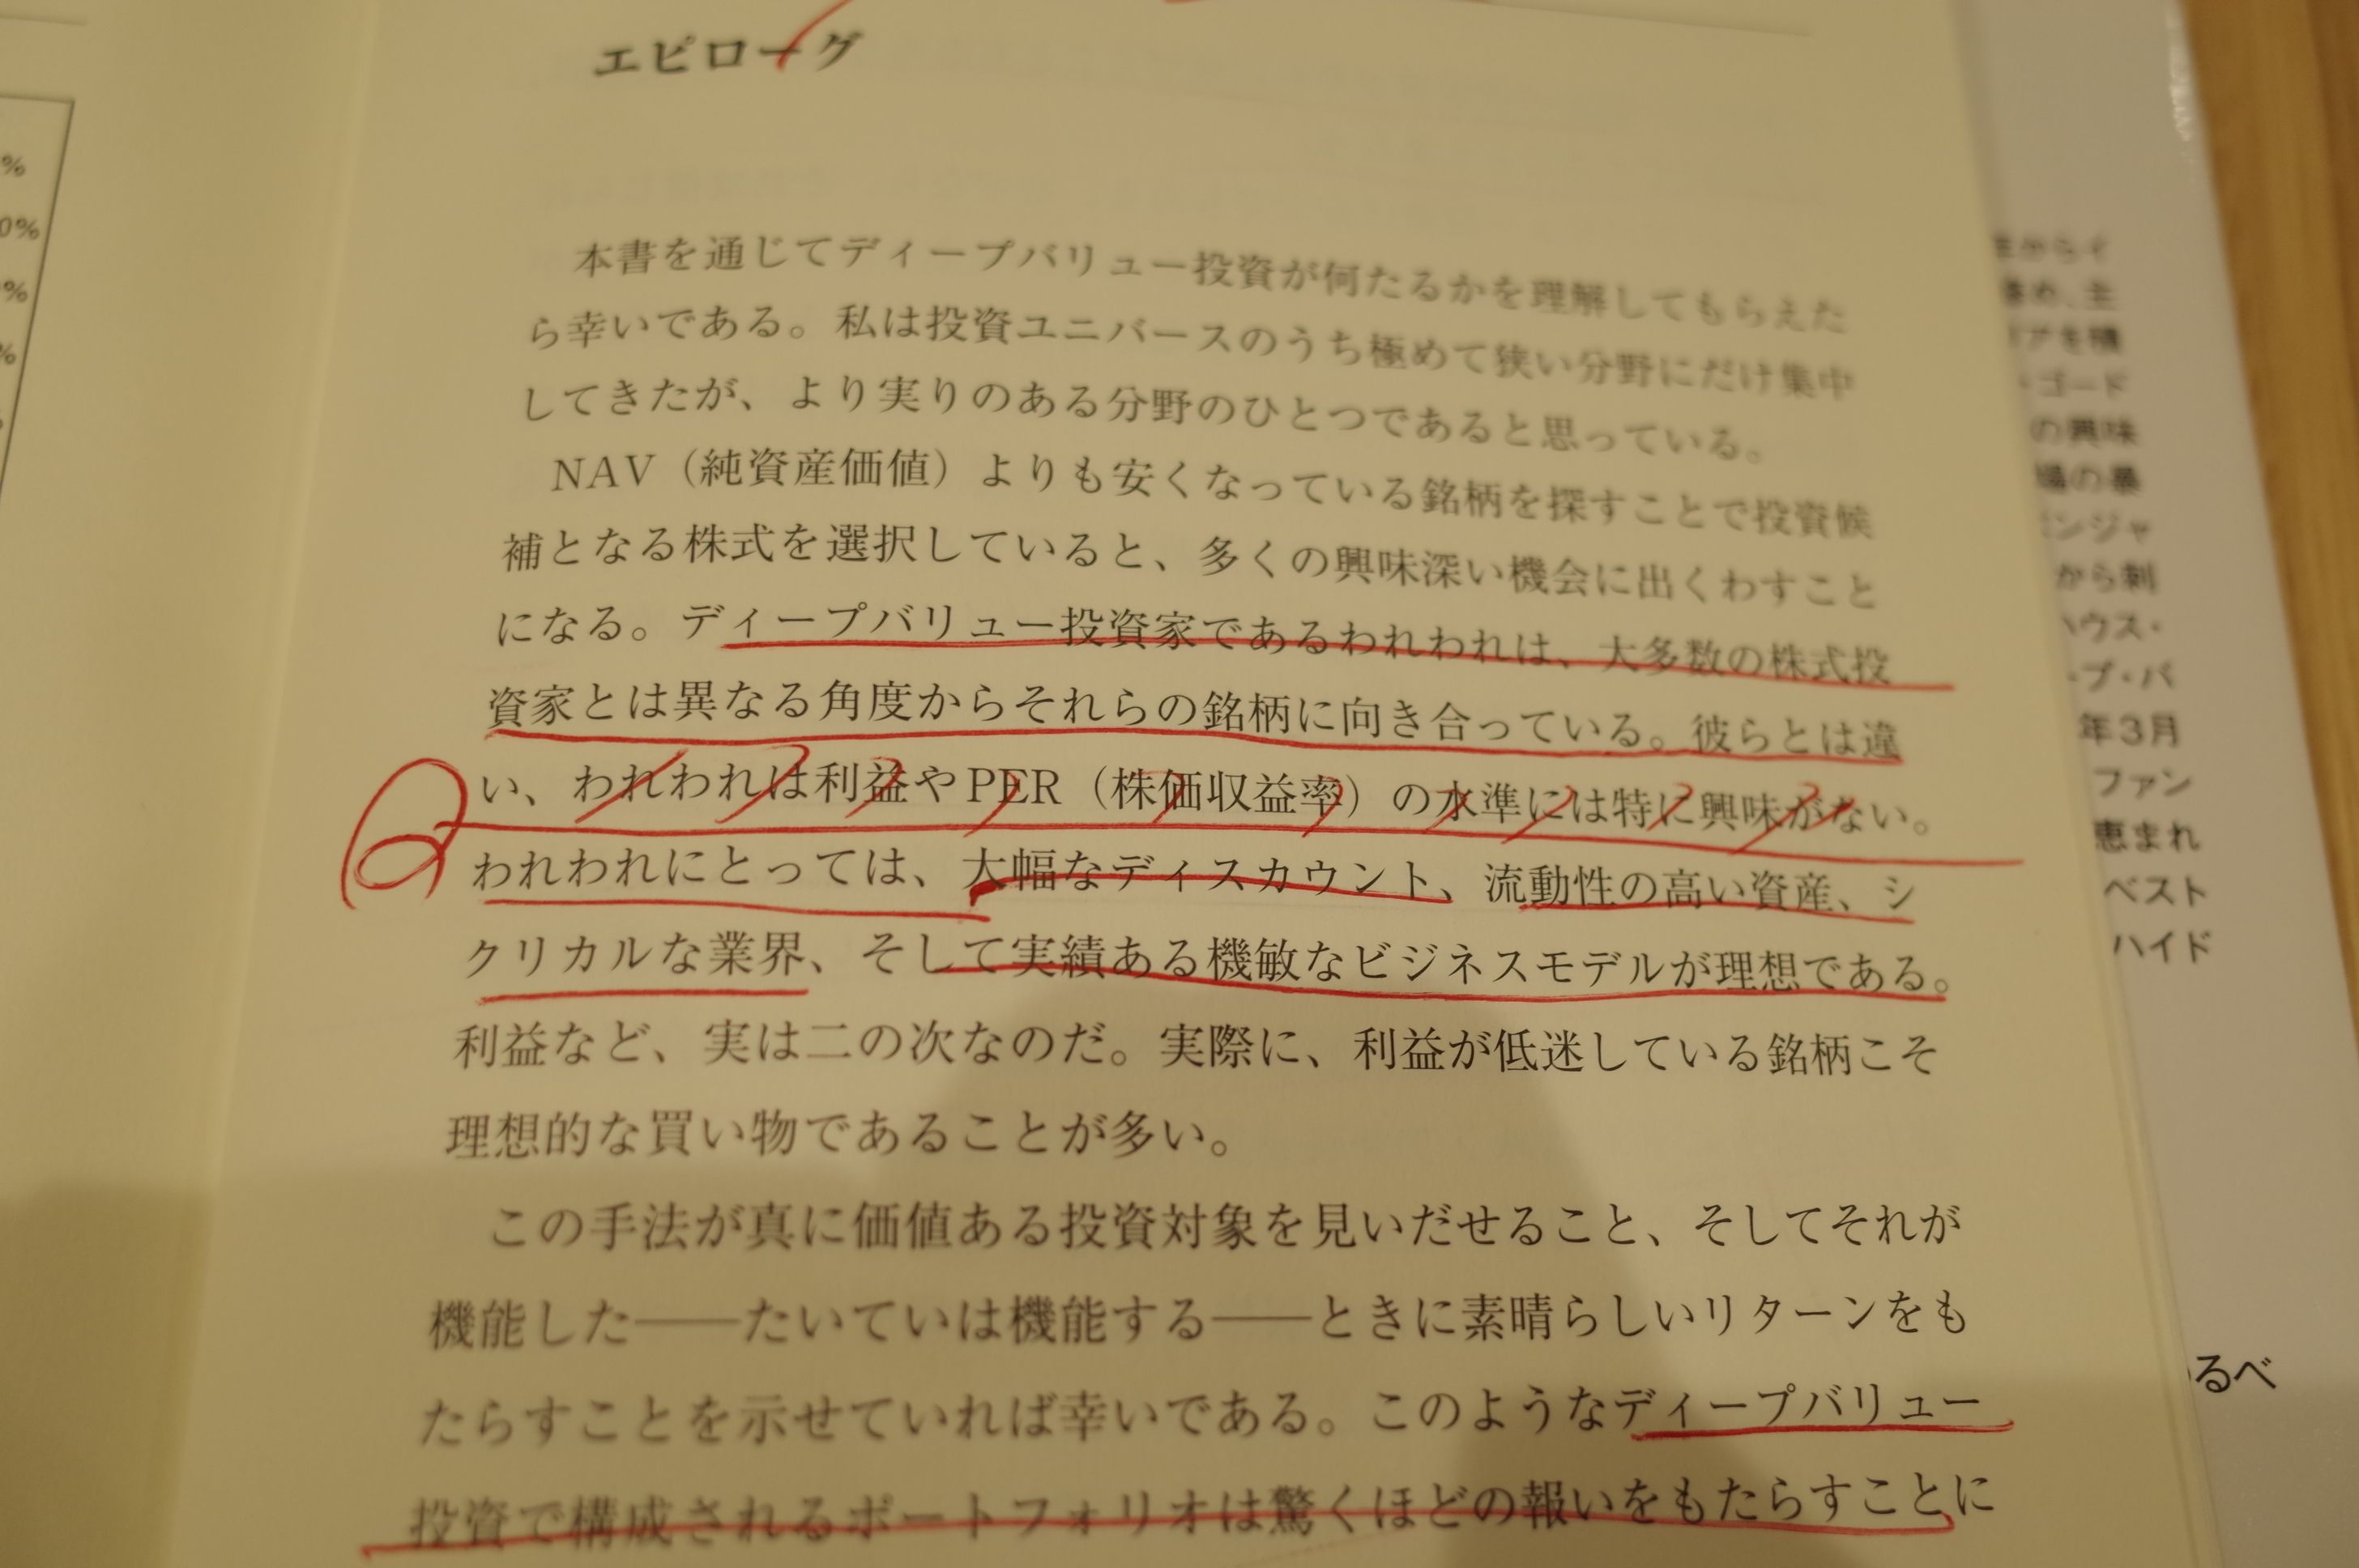 エピローグ
本書を通じてディープバリュー投資が何たるかを理解してもらえた
ら幸いである。私は投資ユニバースのうち極めて狭い分野にだけ集中
してきたが、より実りのある分野のひとつであると思っている。
NAV（純資産価値）よりも安くなっている銘柄を探すことで投資候
補となる株式を選択していると、多くの興味深い機会に出くわすこと
になる。ディープバリュー投資家であるわれわれは、大多数の株式投
資家とは異なる角度からそれらの銘柄に向き合っている。彼らとは違
い、われわれは利益やPER（株価収益率）の水準には特に興味がない。
われわれにとっては、大幅なディスカウント、流動性の高い資産、シ
クリカルな業界、そして実績ある機敏なビジネスモデルが理想である。
利益など、実は二の次なのだ。実際に、利益が低迷している銘柄こそ
理想的な買い物であることが多い。
この手法が真に価値ある投資対象を見いだせること、そしてそれが
機能した――たいていは機能する――ときに素晴らしいリターンをも
たらすことを示せていれば幸いである。このようなディープバリュー
投資で構成されるポートフォリオは驚くほどの報いをもたらすことに
%
0%
%
%
からイ
、主
を積
・ゴード
の興味
の暴
ンジャ
から刺
ハウス・
・プ・バ
年3月
ファン
恵まれ
ベスト
ハイド
るべ